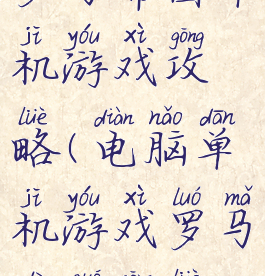 jī yóu xì gōng
机游戏攻
lüè diàn nǎo dān
略(电脑单
jī yóu xì luó mǎ
机游戏罗马